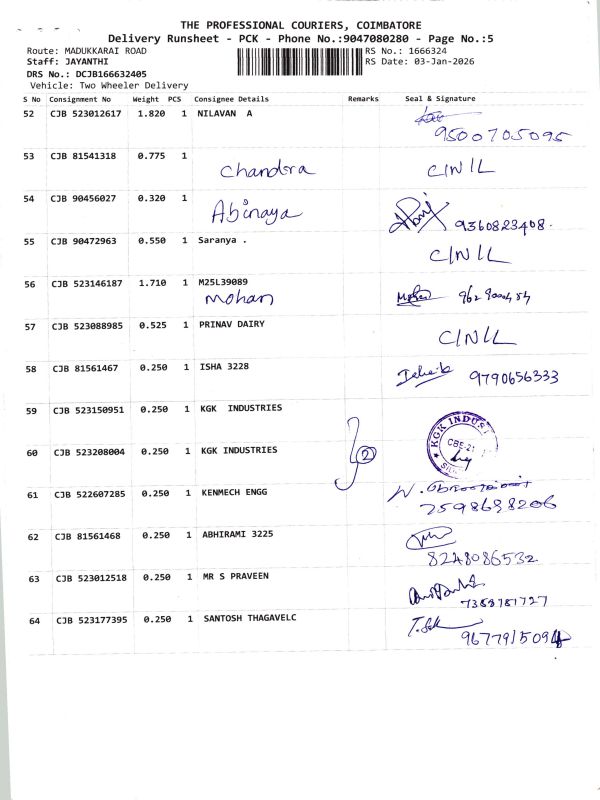 THE PROFESSIONAL COURIERS, COIMBATORE
Delivery Runsheet - PCK - Phone No.:9047080280 - Page No.:5
Route: MADUKKARAI ROAD RS No.: 1666324
Staff: JAYANTHI RS Date: 03-Jan-2026
DRS No.: DCJB166632405
Vehicle: Two Wheeler Delivery
S No Consignment No Weight PCS Consignee Details Remarks Seal & Signature
52 CJB 523012617 1.820 1 NILAVAN A
9500705095
53 CJB 81541318 0.775 1
Chandra C/N/L
54 CJB 90456027 0.320 1
Abinaya 9360823408.
55 CJB 90472963 0.550 1 Saranya .
C/N/L
56 CJB 523146187 1.710 1 M25L39089
Mohan
57 CJB 523088985 0.525 1 PRINAV DAIRY
C/N/L
58 CJB 81561467 0.250 1 ISHA 3228
9790656333
59 CJB 523150951 0.250 1 KGK INDUSTRIES
KGK INDUST
CBE-21
60 CJB 523208004 0.250 1 KGK INDUSTRIES
2
61 CJB 522607285 0.250 1 KENMECH ENGG
7598698206
62 CJB 81561468 0.250 1 ABHIRAMI 3225
8248086532
63 CJB 523012518 0.250 1 MR S PRAVEEN
7383781727
64 CJB 523177395 0.250 1 SANTOSH THAGAVELC